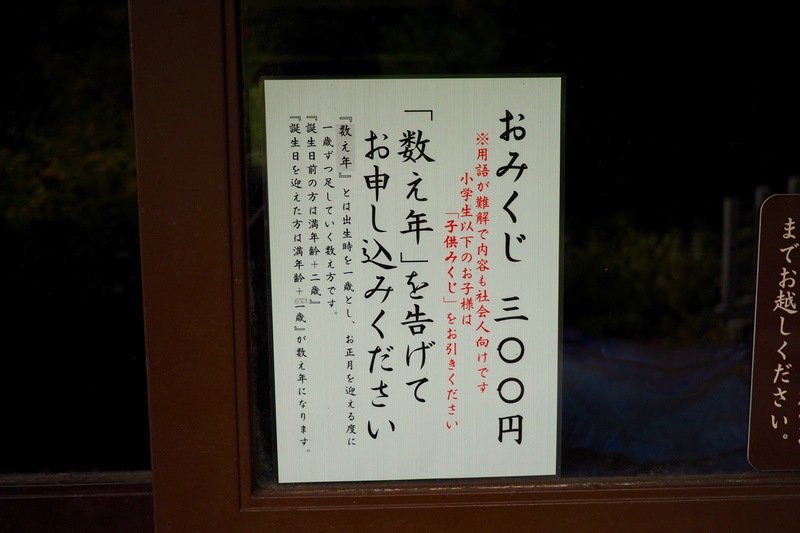 おみくじ 三〇〇円
※用語が難解で内容も社会人向けです
小学生以下のお子様は
「子供みくじ」をお引きください
「数え年」を告げて
お申し込みください
『数え年』とは出生時を一歳とし、お正月を迎える度に
一歳ずつ足していく数え方です。
『誕生日前の方は満年齢＋二歳』
『誕生日を迎えた方は満年齢＋一歳』が数え年になります。
までお越しください。